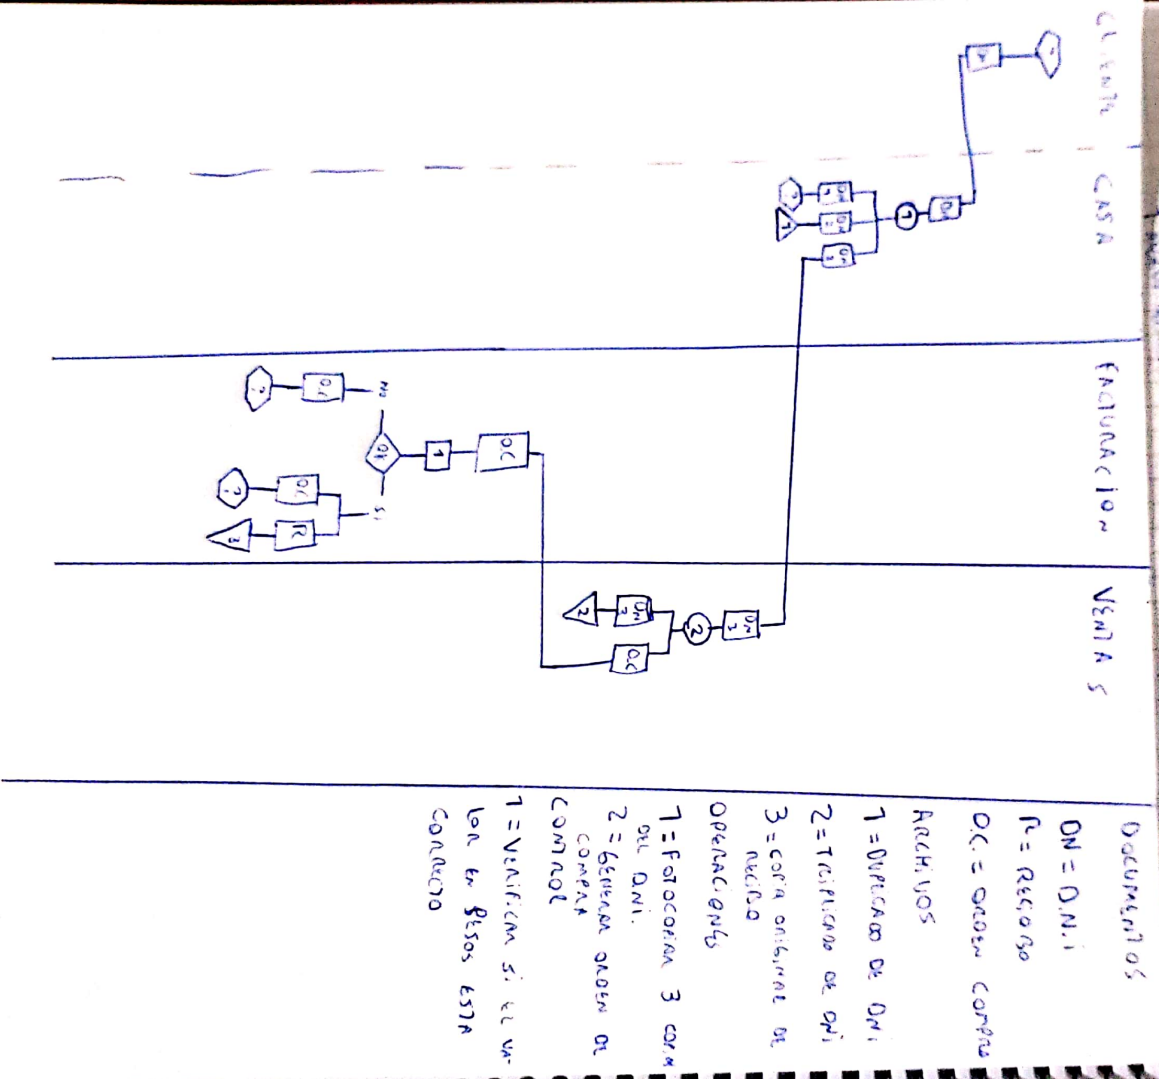 CLIENTE
CASA
FACTURACION
VENTAS
DN
1
DN
1
DN
2
DN
3
?
1
DN
3
2
DN
3
O.C
2
O.C
1
OK
NO
SI
O.C
?
O.C
R
?
3
DOCUMENTOS
DN = D.N.i
R = RECIBO
O.C. = ORDEN COMPRA
ARCHIVOS
1 = DUPLICADO DE DNi
2 = TRIPLICADO DE DNi
3 = COPIA ORIGINAL DE
RECIBO
OPERACIONES
1 = FOTOCOPIAR 3 COPIA
DEL DNI.
2 = GENERAR ORDEN DE
COMPRA
CONTROL
1 = VERIFICAR Si EL VA-
LOR EN PESOS ESTA
CORRECTO